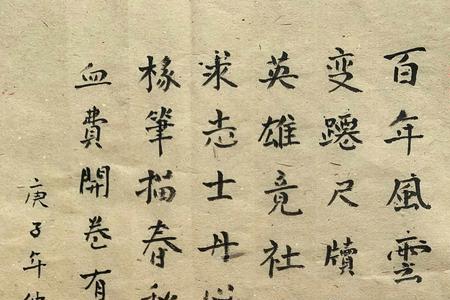 百年風雲
变躚尺牘
英雄竟社
求志士丹
椽筆描春
血費開卷有
庚子年